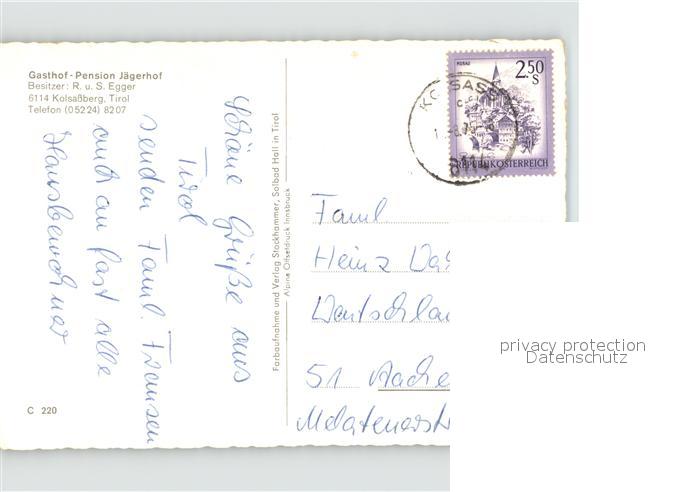 Gasthof - Pension Jägerhof
Besitzer: R. u. S. Egger
6114 Kolsaßberg, Tirol
Telefon (05224) 8207
Schöne Grüße aus
Tirol
senden Faml. Fransen
auch an fast alle
Hausbewohner
C 220
Farbaufnahme und Verlag Stockhammer, Solbad Hall in Tirol
Alpine Offsetdruck Innsbruck
MURAU
2.50
S
REPUBLIK ÖSTERREICH
KOLSASS
Faml
Heinz
Deutschlan
51 Aache
privacy protection
Datenschutz